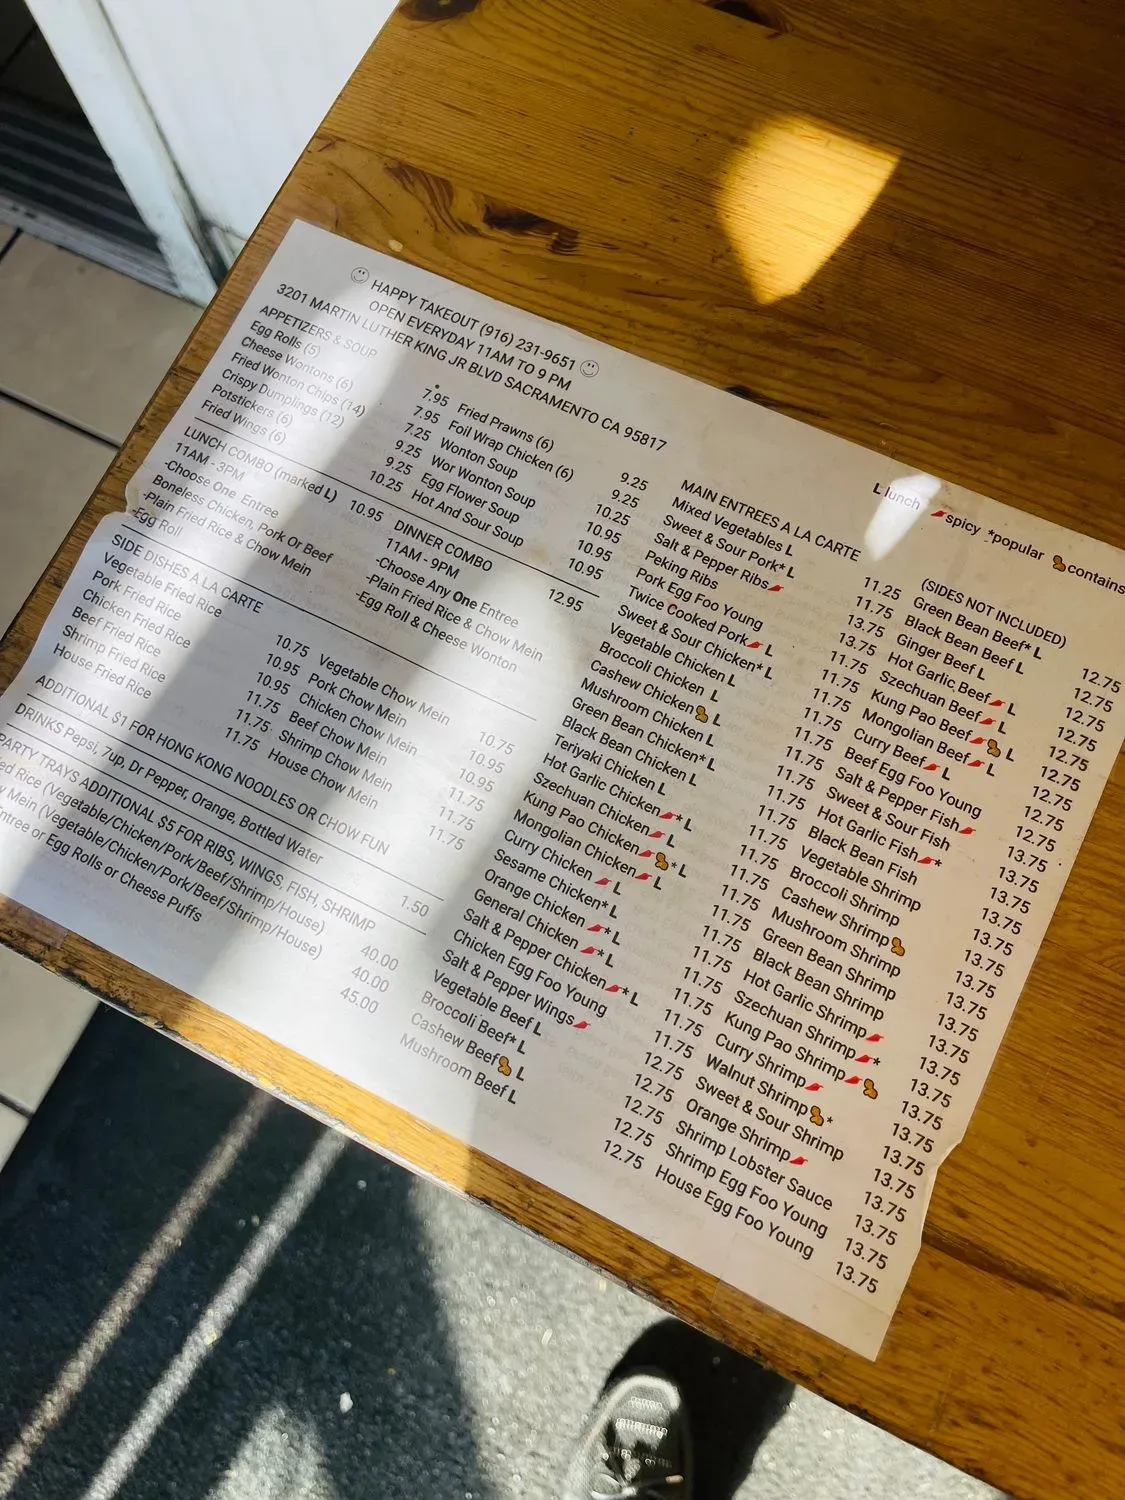 HAPPY TAKEOUT (916) 231-9651
OPEN EVERYDAY 11AM TO 9 PM
3201 MARTIN LUTHER KING JR BLVD SACRAMENTO CA 95817
APPETIZERS & SOUP
Egg Rolls (5) 7.95 Fried Prawns (6) 9.25
Cheese Wontons (6) 7.95 Foil Wrap Chicken (6) 9.25
Fried Wonton Chips (14) 7.25 Wonton Soup 10.25
Crispy Dumplings (12) 9.25 Wor Wonton Soup 10.95
Potstickers (6) 9.25 Egg Flower Soup 10.95
Fried Wings (6) 10.25 Hot And Sour Soup 10.95
LUNCH COMBO (marked L) 10.95
11AM - 3PM
-Choose One Entree
Boneless Chicken, Pork Or Beef
-Plain Fried Rice & Chow Mein
-Egg Roll
DINNER COMBO 12.95
11AM - 9PM
-Choose Any One Entree
-Plain Fried Rice & Chow Mein
-Egg Roll & Cheese Wonton
SIDE DISHES A LA CARTE
Vegetable Fried Rice 10.75 Vegetable Chow Mein 10.75
Pork Fried Rice 10.95 Pork Chow Mein 10.95
Chicken Fried Rice 10.95 Chicken Chow Mein 10.95
Beef Fried Rice 11.75 Beef Chow Mein 11.75
Shrimp Fried Rice 11.75 Shrimp Chow Mein 11.75
House Fried Rice 11.75 House Chow Mein 11.75
ADDITIONAL $1 FOR HONG KONG NOODLES OR CHOW FUN
DRINKS Pepsi, 7up, Dr Pepper, Orange, Bottled Water 1.50
PARTY TRAYS ADDITIONAL $5 FOR RIBS, WINGS, FISH, SHRIMP
Rice (Vegetable/Chicken/Pork/Beef/Shrimp/House) 40.00
Mein (Vegetable/Chicken/Pork/Beef/Shrimp/House) 40.00
or Egg Rolls or Cheese Puffs 45.00
L lunch spicy *popular contains
MAIN ENTREES A LA CARTE (SIDES NOT INCLUDED)
Mixed Vegetables L 11.25
Sweet & Sour Pork* L 11.75
Salt & Pepper Ribs 13.75
Peking Ribs 13.75
Pork Egg Foo Young 11.75
Twice Cooked Pork L 11.75
Sweet & Sour Chicken* L 11.75
Vegetable Chicken L 11.75
Broccoli Chicken L 11.75
Cashew Chicken L 11.75
Mushroom Chicken L 11.75
Green Bean Chicken* L 11.75
Black Bean Chicken L 11.75
Teriyaki Chicken L 11.75
Hot Garlic Chicken * L 11.75
Szechuan Chicken L 11.75
Kung Pao Chicken * L 11.75
Mongolian Chicken L 11.75
Curry Chicken L 11.75
Sesame Chicken* L 11.75
Orange Chicken * L 11.75
General Chicken * L 11.75
Salt & Pepper Chicken * L 11.75
Chicken Egg Foo Young 11.75
Salt & Pepper Wings 12.75
Vegetable Beef L 12.75
Broccoli Beef* L 12.75
Cashew Beef L 12.75
Mushroom Beef L 12.75
Green Bean Beef* L 12.75
Black Bean Beef L 12.75
Ginger Beef L 12.75
Hot Garlic Beef L 12.75
Szechuan Beef L 12.75
Kung Pao Beef L 12.75
Mongolian Beef L 12.75
Curry Beef L 12.75
Beef Egg Foo Young 12.75
Salt & Pepper Fish 13.75
Sweet & Sour Fish 13.75
Hot Garlic Fish * 13.75
Black Bean Fish 13.75
Vegetable Shrimp 13.75
Broccoli Shrimp 13.75
Cashew Shrimp 13.75
Mushroom Shrimp 13.75
Green Bean Shrimp 13.75
Black Bean Shrimp 13.75
Hot Garlic Shrimp 13.75
Szechuan Shrimp * 13.75
Kung Pao Shrimp 13.75
Curry Shrimp 13.75
Walnut Shrimp * 13.75
Sweet & Sour Shrimp 13.75
Orange Shrimp 13.75
Shrimp Lobster Sauce 13.75
Shrimp Egg Foo Young 13.75
House Egg Foo Young 13.75